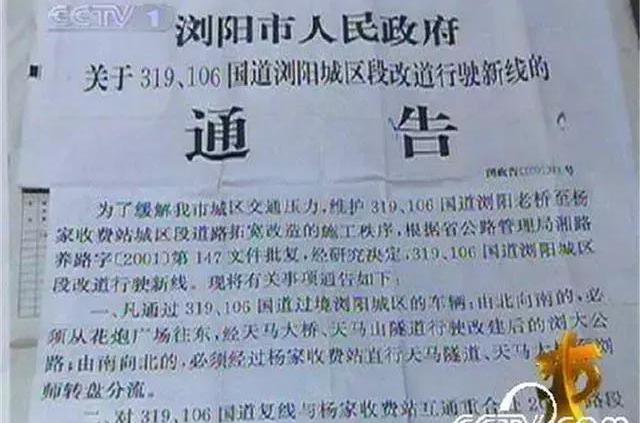 CCTV 1
浏阳市人民政府
关于 319、106 国道浏阳城区段改道行驶新线的
通告
浏政告〔2001〕 号
为了缓解我市城区交通压力,维护 319、106 国道浏阳老桥至杨
家收费站城区段道路拓宽改造的施工秩序,根据省公路管理局湘路
养路字〔2001〕第 147 文件批复,经研究决定,319、106 国道浏阳城区
段改道行驶新线。现将有关事项通告如下:
一、凡通过 319、106 国道过境浏阳城区的车辆:由北向南的,必
须从花炮广场往东,经天马大桥、天马山隧道行驶改建后的浏大公
路;由南向北的,必须经过杨家收费站直行天马隧道、天马大 至浏
师转盘分流。
二、对 319、106 国道复线与杨家收费站互通重合 20 路段
CCTV.com